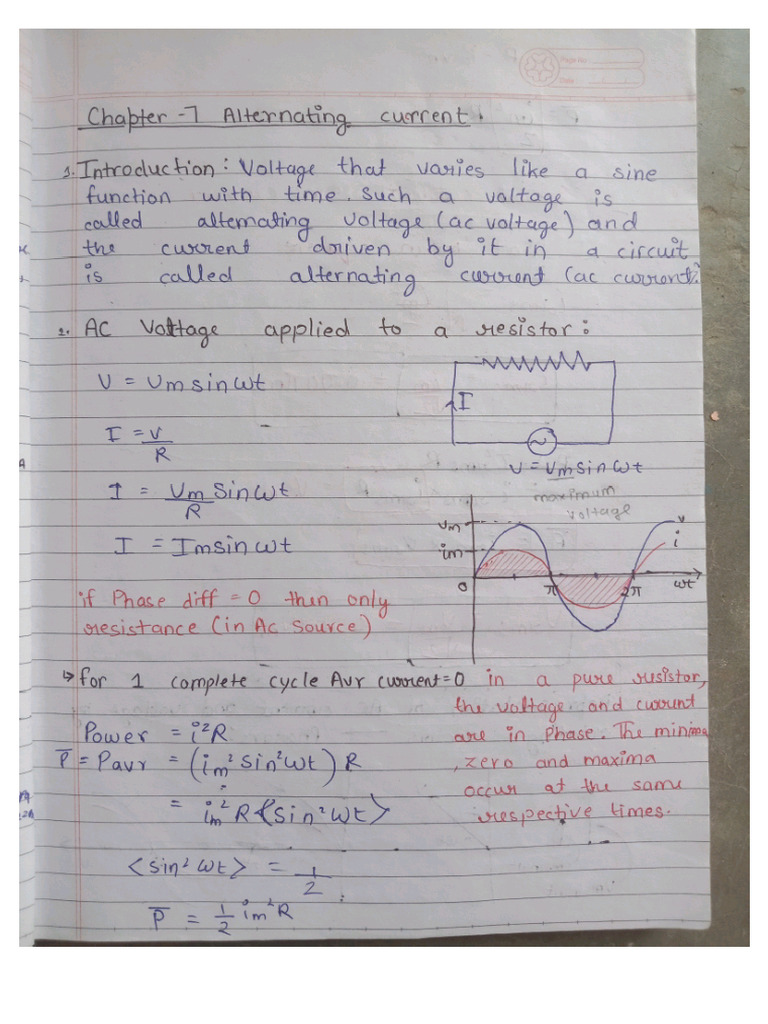 Page No
Date
Chapter -7 Alternating current.
1. Introduction: Voltage that varies like a sine
function with time. Such a voltage is
called alternating voltage (ac voltage) and
the current driven by it in a circuit
is called alternating current (ac current).
2. AC Voltage applied to a resistor:
V = Vm sin ωt
I
I = V/R
V = Vm sin ωt
I = Vm/R Sin ωt
maximum
voltage
I = Im sin ωt
Vm
v
im
i
0 π 2π ωt
if Phase diff = 0 then only
resistance (in Ac Source)
↳ for 1 complete cycle Avr current = 0
in a pure resistor,
the voltage and current
are in Phase. The minima
, zero and maxima
occur at the same
respective times.
Power = i²R
P̅ = Pavr = (im² sin² ωt) R
= im² R <sin² ωt>
<sin² ωt> = 1/2
P̅ = 1/2 im² R